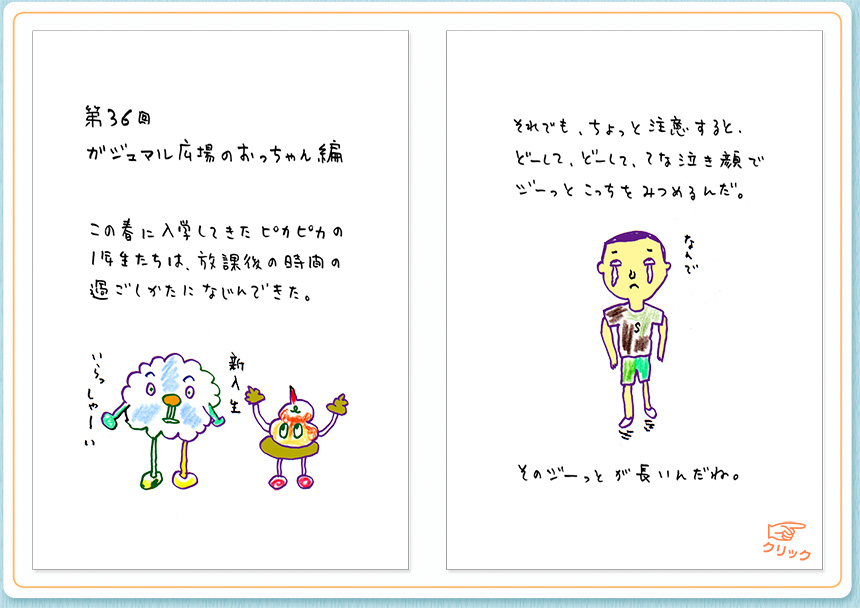 第36回
ガジュマル広場のおっちゃん編
この春に入学してきたピカピカの
1年生たちは、放課後の時間の
過ごしかたになじんできた。
いらっしゃーい
新入生
それでも、ちょっと注意すると、
どーして、どーして、てな泣き顔で
ジーっとこっちをみつめるんだ。
なんで
S
そのジーっとが長いんだね。
クリック